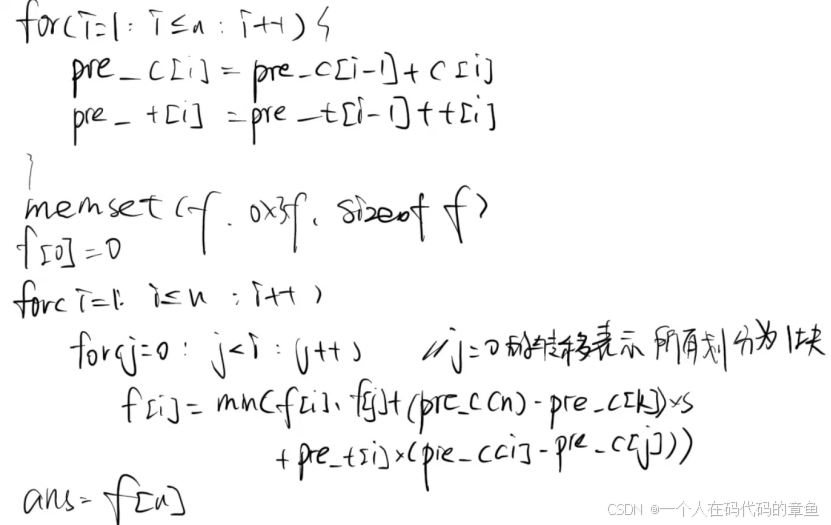 for(i=1: i≤n : i++) {
pre_c[i] = pre_c[i-1] + c[i]
pre_t[i] = pre_t[i-1] + t[i]
}
memset(f. 0x3f. sizeof f)
f[0]=0
for(i=1: i≤n : i++)
for(j=0: j<i: j++) //j=0的转移表示 所有划分为1块
f[i]= min(f[i], f[j]+(pre_c(n)-pre_c[k])×s
+pre_t[i]×(pre_c[i]-pre_c[j]))
ans= f[n]
CSDN @一个人在码代码的章鱼